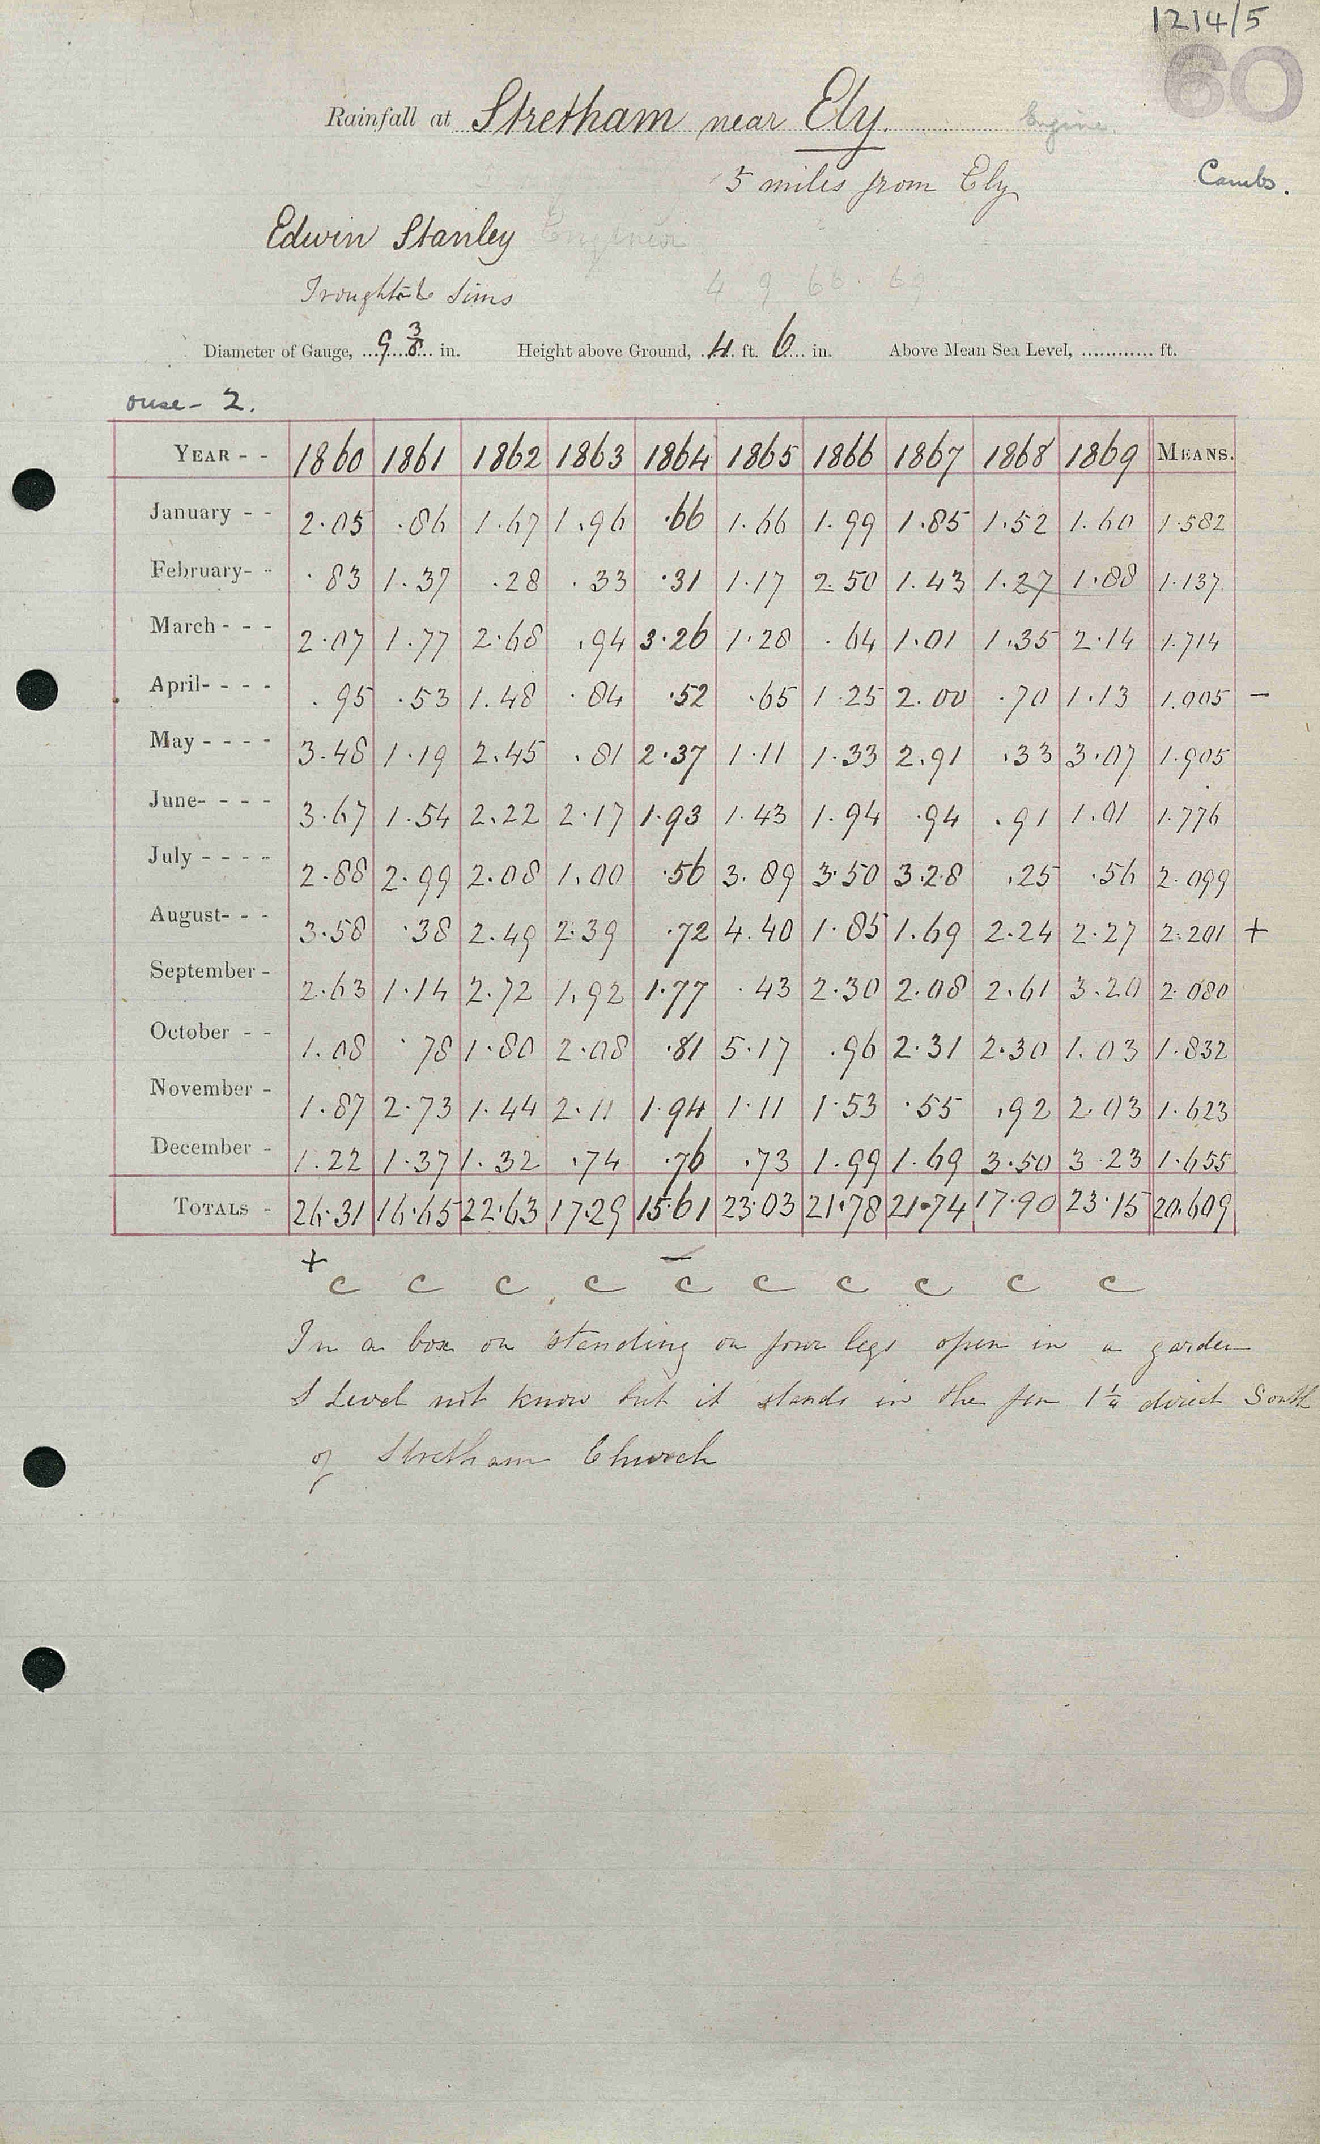 1214/5
60
Rainfall at Stretham near Ely. Engine.
5 miles from Ely
Cambs.
Edwin Stanley Engineer
Troughton & Sims
4 9 66. 69
Diameter of Gauge, 9 3/8 in. Height above Ground, 4 ft. 6 in. Above Mean Sea Level, ............ ft.
ouse - 2.
YEAR - - 1860 1861 1862 1863 1864 1865 1866 1867 1868 1869 MEANS.
January - - 2.05 .86 1.67 1.96 .66 1.66 1.99 1.85 1.52 1.60 1.582
February- - .83 1.37 .28 .33 .31 1.17 2.50 1.43 1.27 1.88 1.137
March - - - 2.07 1.77 2.68 .94 3.26 1.28 .64 1.01 1.35 2.14 1.714
April- - - - .95 .53 1.48 .84 .52 .65 1.25 2.00 .70 1.13 1.005 -
May - - - - 3.48 1.19 2.45 .81 2.37 1.11 1.33 2.91 .33 3.07 1.905
June- - - - 3.67 1.54 2.22 2.17 1.93 1.43 1.94 .94 .91 1.01 1.776
July - - - - 2.88 2.99 2.08 1.00 .56 3.89 3.50 3.28 .25 .56 2.099
August- - - 3.58 .38 2.49 2.39 .72 4.40 1.85 1.69 2.24 2.27 2.201 +
September - 2.63 1.14 2.72 1.92 1.77 .43 2.30 2.08 2.61 3.20 2.080
October - - 1.08 .78 1.80 2.08 .81 5.17 .96 2.31 2.30 1.03 1.832
November - 1.87 2.73 1.44 2.11 1.94 1.11 1.53 .55 .92 2.03 1.623
December - 1.22 1.37 1.32 .74 .76 .73 1.99 1.69 3.50 3.23 1.655
TOTALS - 26.31 16.65 22.63 17.29 15.61 23.03 21.78 21.74 17.90 23.15 20.609
+ -
c c c c c c c c c c
In a box on standing on four legs open in a garden
I Level not know but it stands in the fen 1 1/4 direct South
of Stretham Church